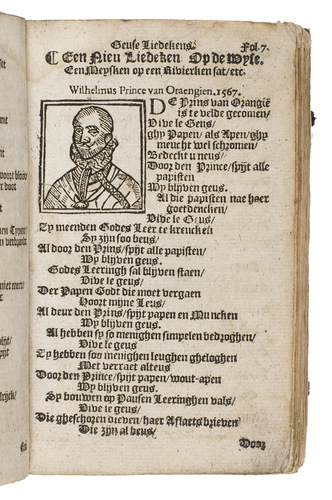 Geuse Liedekens. Fol. 7.
☾ Een Nieu Liedeken Op de wyse.
Een Meysken op een Rivierken sat/etc.
Wilhelmus Prince van Oraengien. 1567.
DE Prins van Orangië
is te velde gecomen/
Vive le Geus/
ghy Papen/ als Apen/ghy
meucht wel schromen/
Bedeckt u neus/
Door den Prince/spijt alle
papisten
Wy blijven geus.
Al die papisten nae haer
goetdencken/
Vive le Geus/
Sy meenden Godes Leer te krencken
Sy zijn soo beus/
Al door den Prins/ spijt alle papisten/
Wy blyven geus.
Godes Leeringh sal blyven staen/
Vive le geus/
Der Papen Godt die moet vergaen
Hoort mijne Leus/
Al deur den Prins/ spijt papen en Muncken
Wy blyven geus.
Al hebben sy so menighen simpelen bedroghen/
Vive le geus
Sy hebben soo menighen leughen gheloghen
Met verraet alteus
Door den Prince/spijt papen/wout-apen
Wy blyven geus.
Sy bouwen op Pausen Leeringhen vals/
Vive le geus/
Die gheschoren dieven/haer Aflaets brieven
Die zijn al beus/
Door